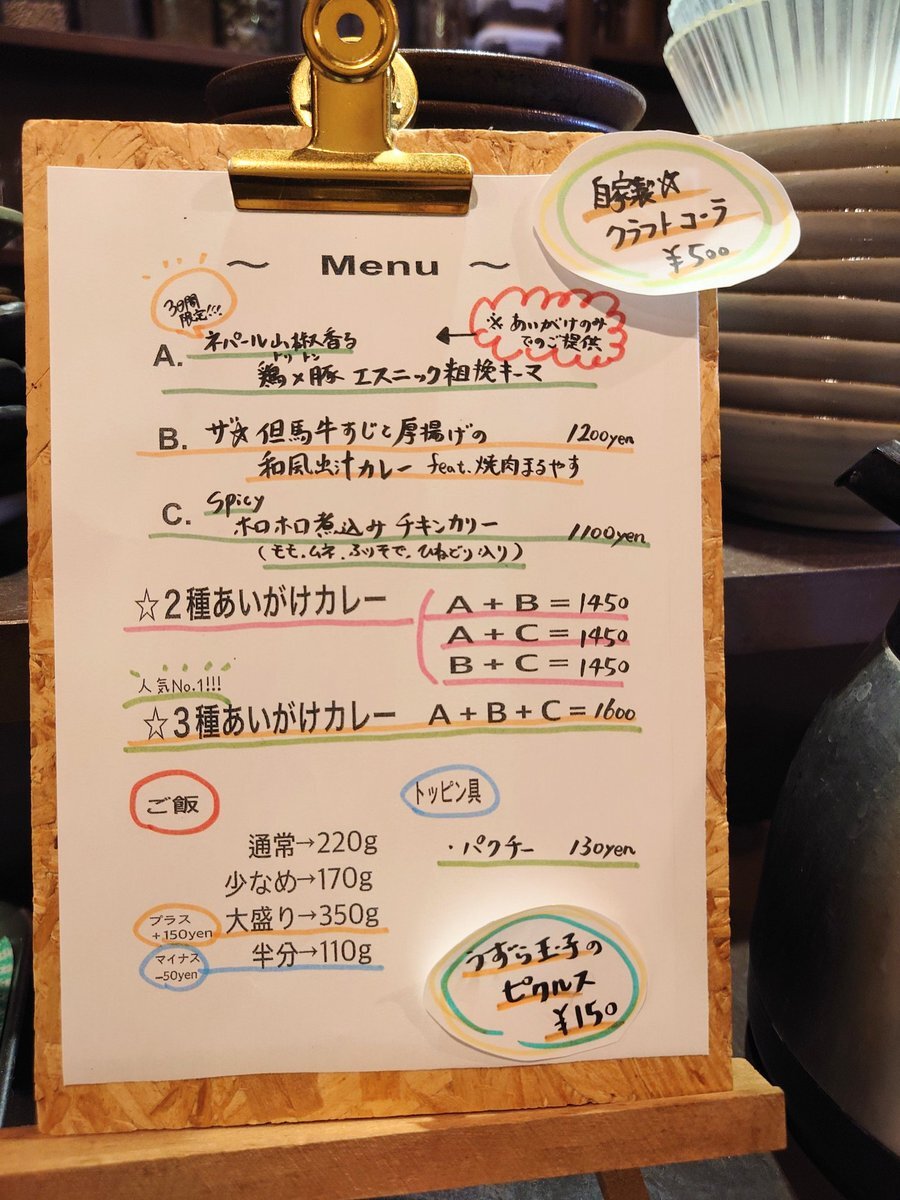 自家製☆
クラフトコーラ
¥500
~ Menu ~
3日間
限定!!!
※あいがけのみ
でのご提供
A. ネパール山椒香る
トリ トン
鶏×豚 エスニック粗挽キーマ
B. ザ☆但馬牛すじと厚揚げの 1200yen
和風出汁カレー feat.焼肉まるやす
C. Spicy
ホロホロ煮込み チキンカリー 1100yen
(もも、ムネ、ふりそで、ひねどり入り)
☆2種あいがけカレー A+B=1450
A+C=1450
B+C=1450
人気No.1!!!
☆3種あいがけカレー A+B+C=1600
ご飯
通常→220g
少なめ→170g
プラス
+150yen
大盛り→350g
マイナス
-50yen
半分→110g
トッピン具
・パクチー 130yen
うずら玉子の
ピクルス
¥150